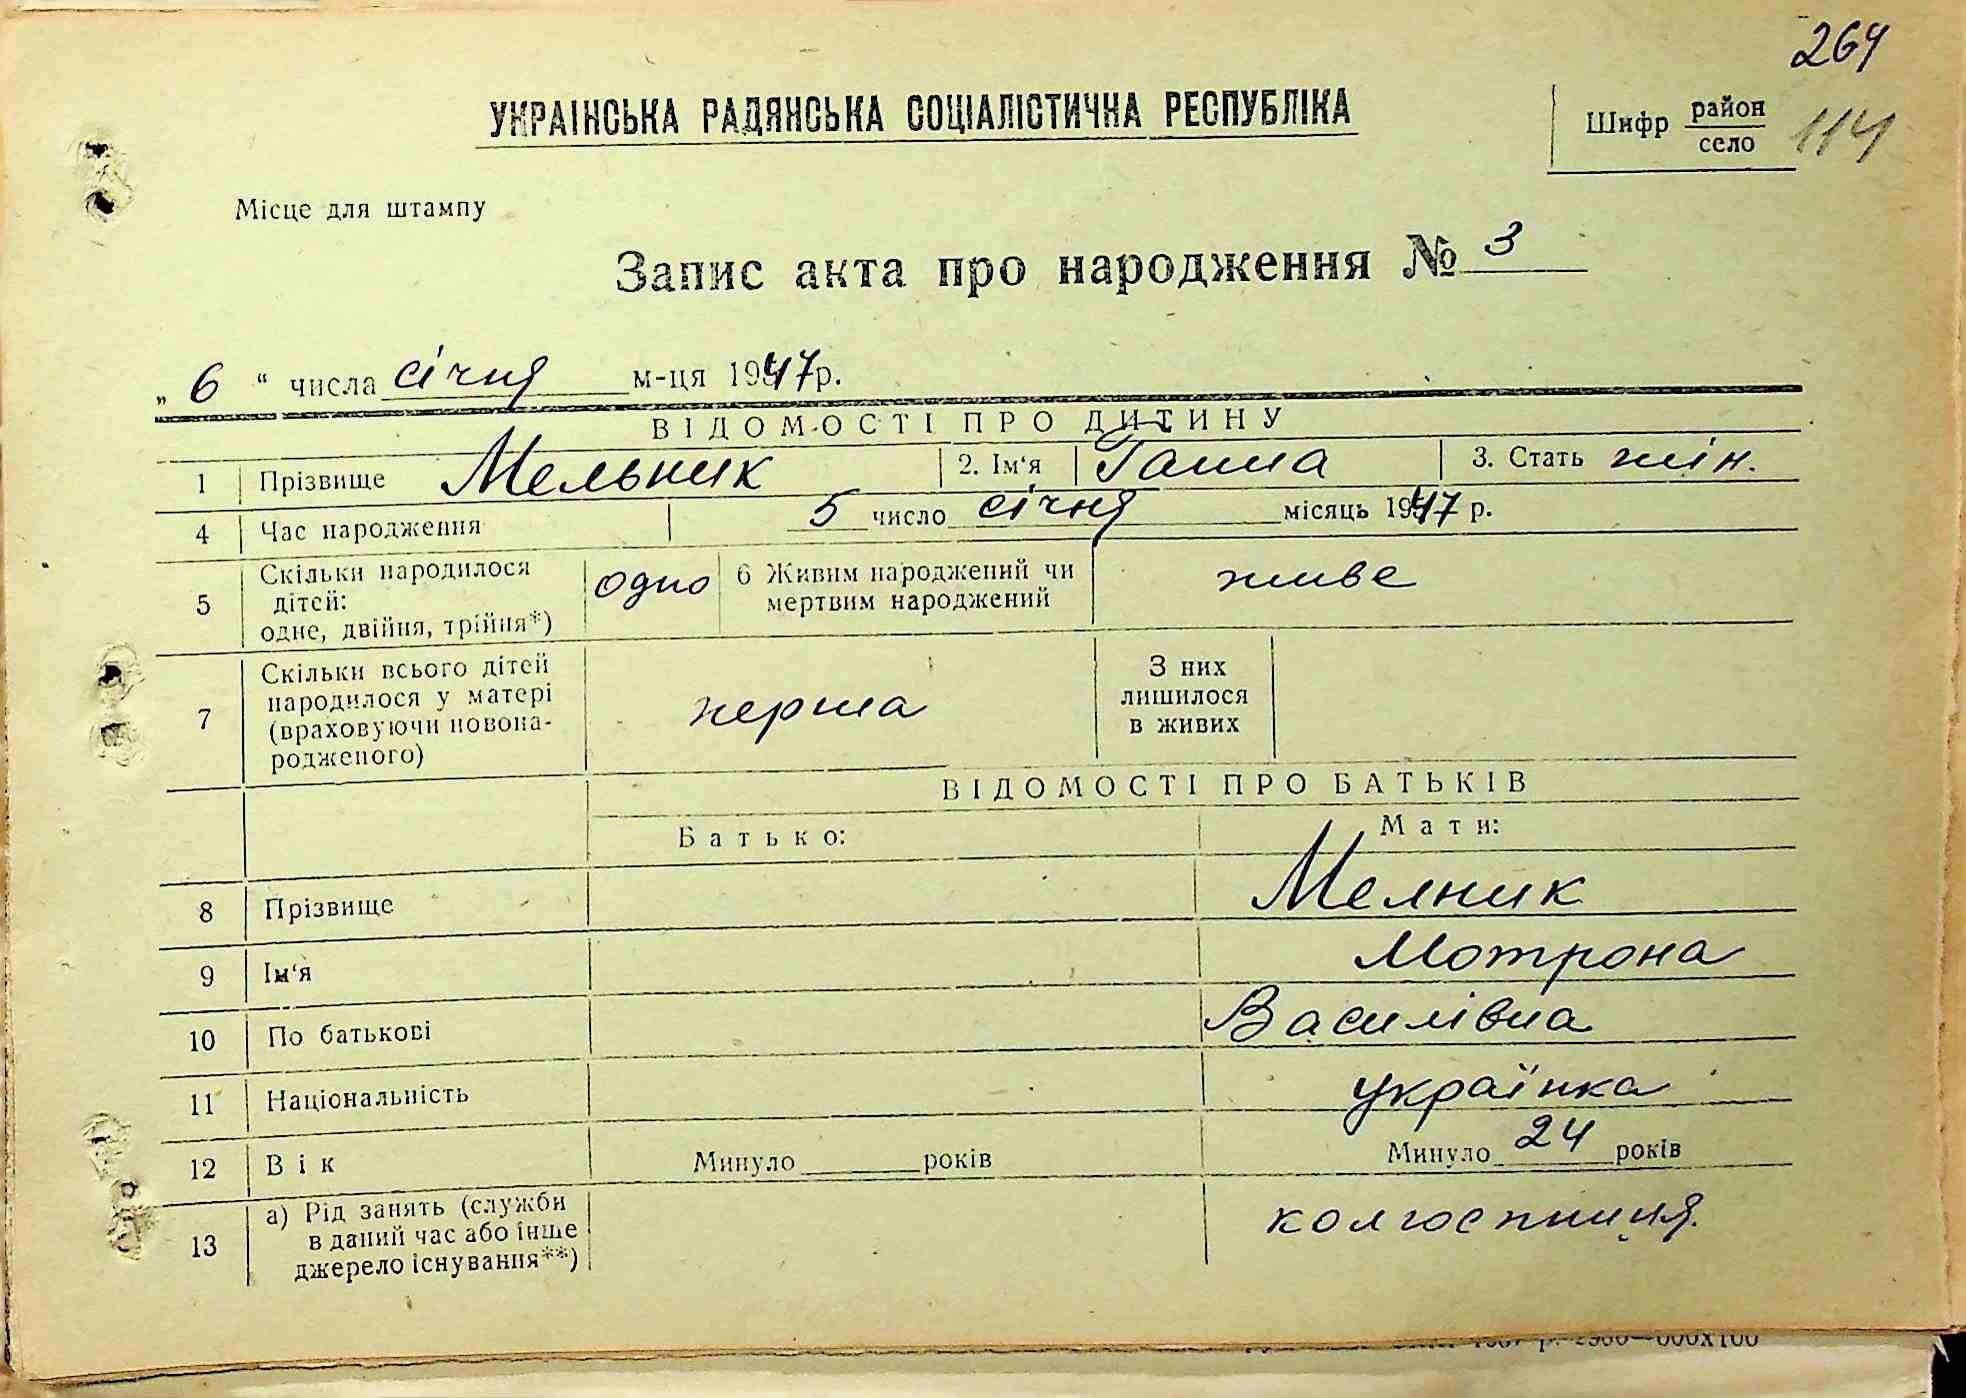 264
УКРАЇНСЬКА РАДЯНСЬКА СОЦІАЛІСТИЧНА РЕСПУБЛІКА
Шифр район
село
114
Місце для штампу
Запис акта про народження № 3
„ 6 “ числа січня м-ця 1947 р.
ВІДОМОСТІ ПРО ДИТИНУ
1 Прізвище Мельник 2. Ім'я Ганна 3. Стать жін.
4 Час народження 5 число січня місяць 1947 р.
5 Скільки народилося дітей: одне, двійня, трійня*) одно 6 Живим народжений чи мертвим народжений живе
7 Скільки всього дітей народилося у матері (враховуючи новонародженого) перша З них лишилося в живих
ВІДОМОСТІ ПРО БАТЬКІВ
Батько: Мати:
8 Прізвище Мелник
9 Ім'я Мотрона
10 По батькові Василівна
11 Національність українка
12 Вік Минуло років Минуло 24 років
13 а) Рід занять (служби в даний час або інше джерело існування**) колгоспниця.